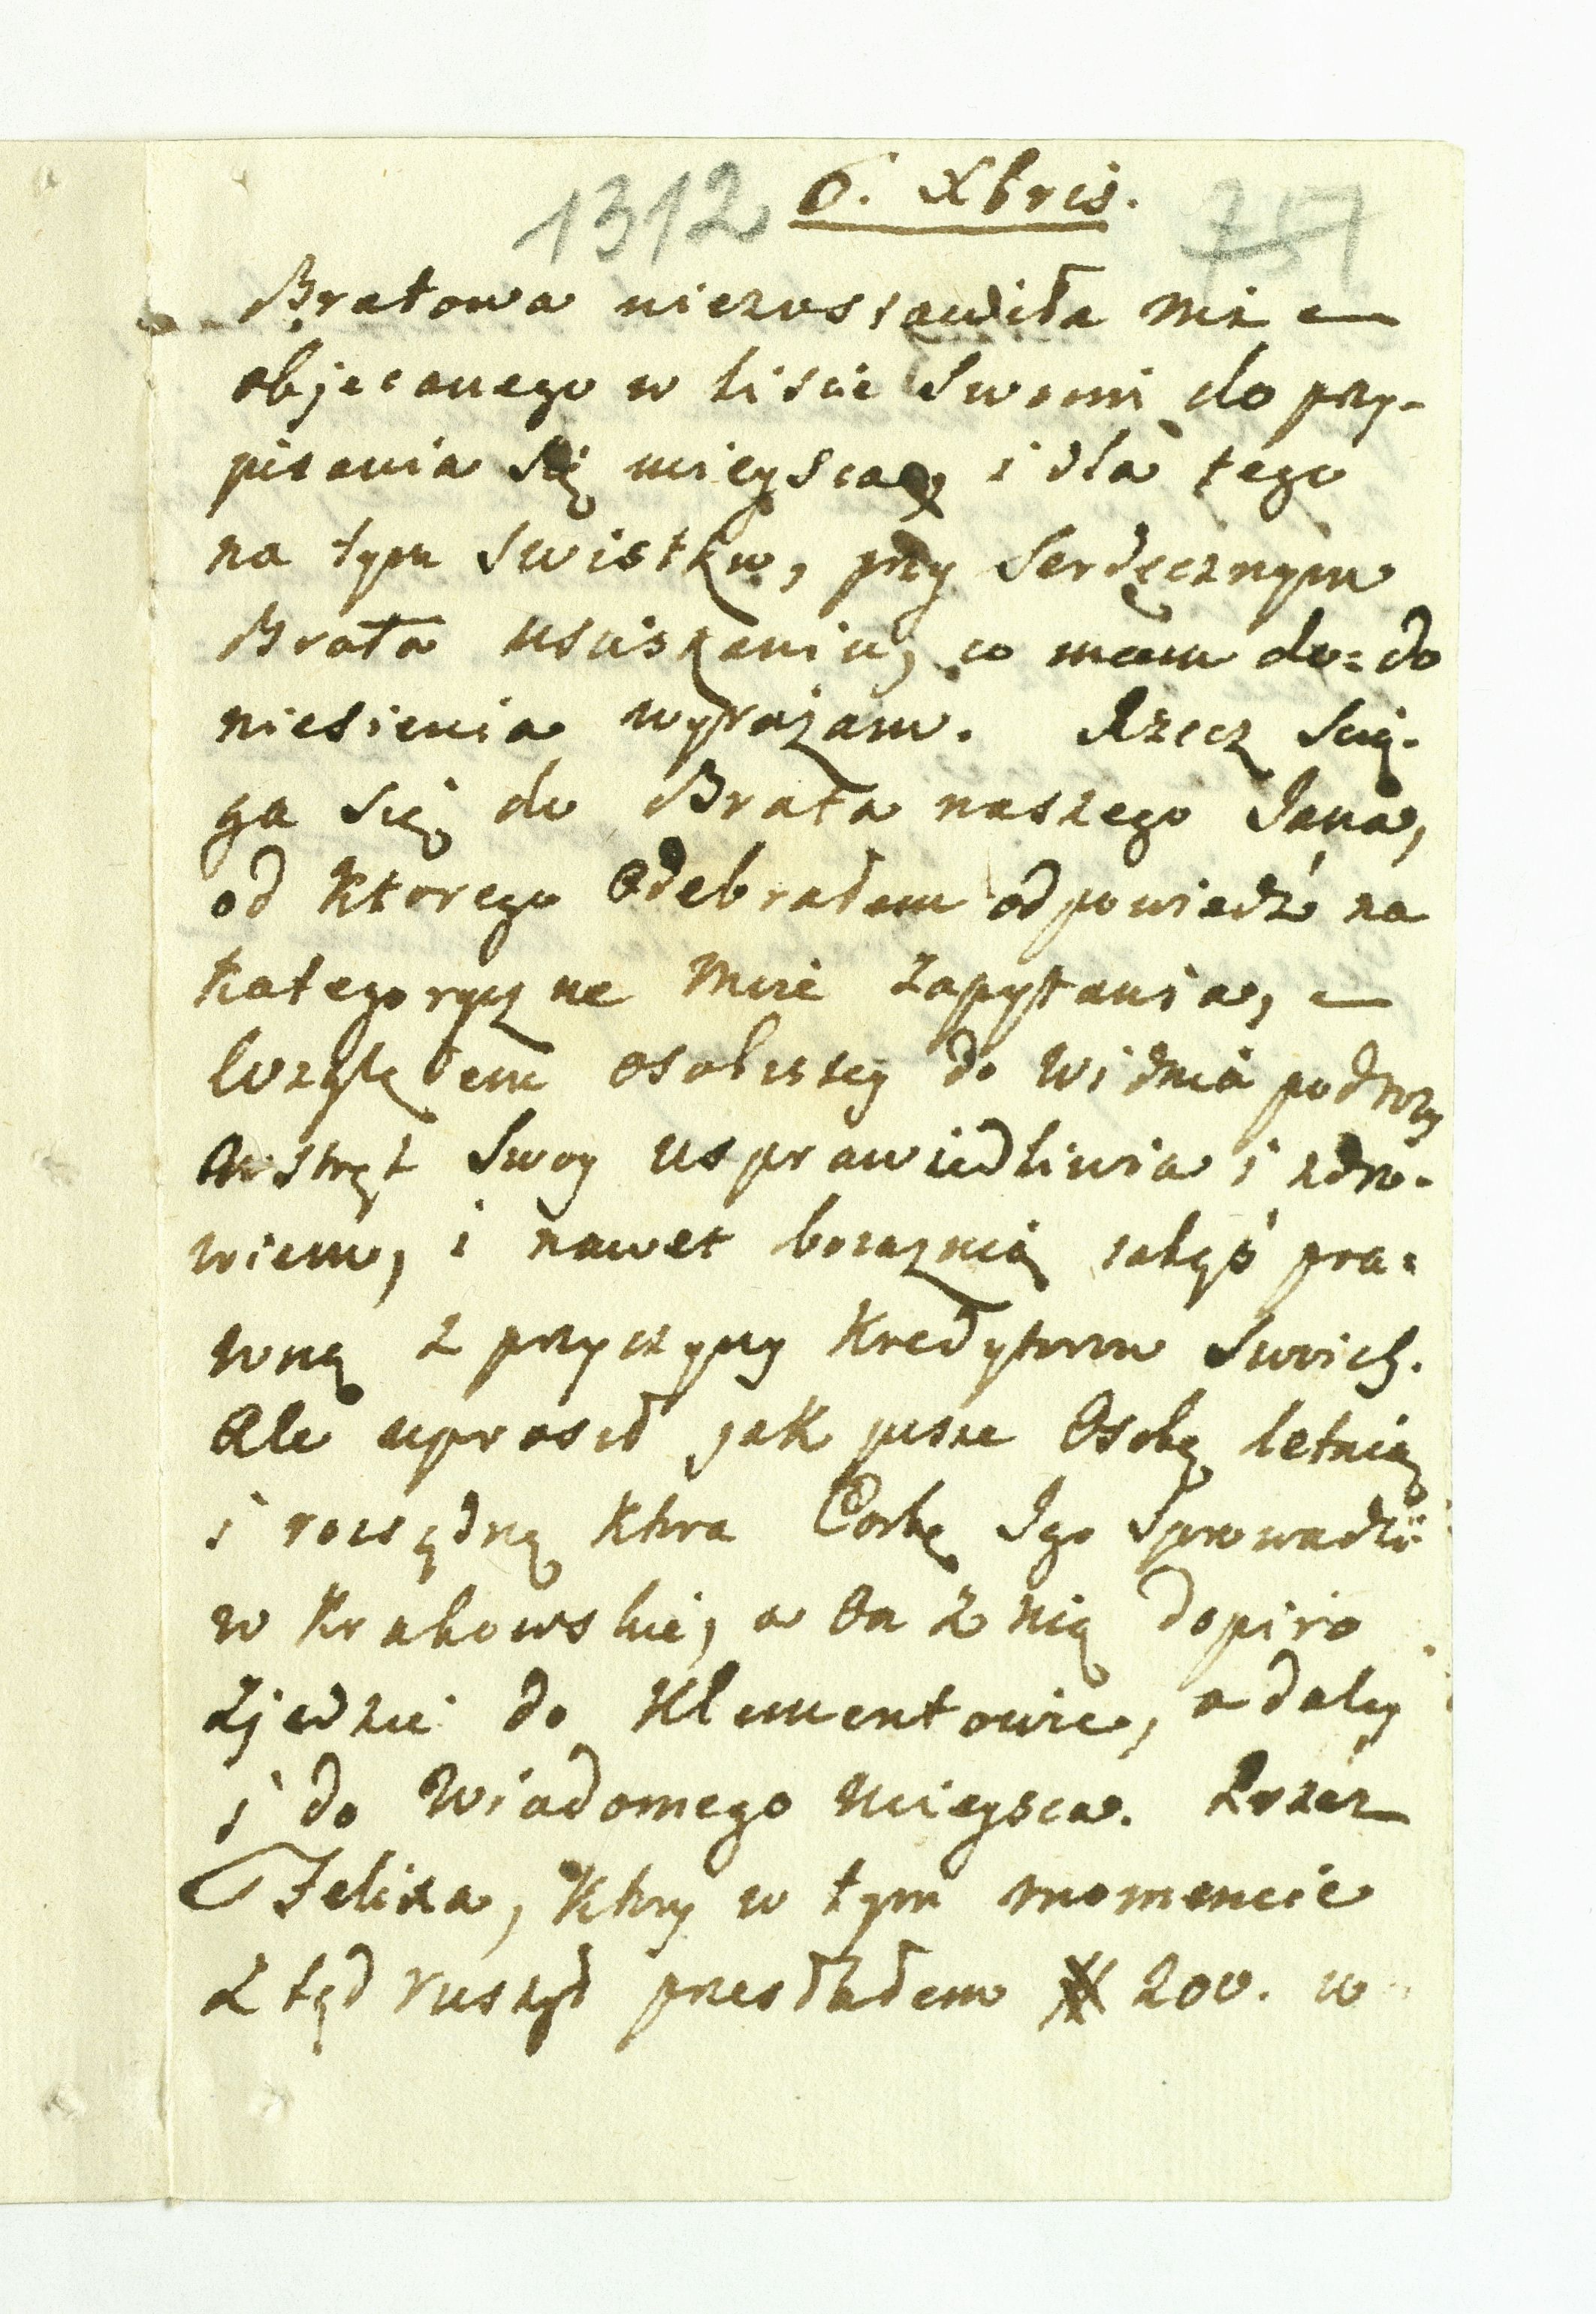 1312 6. Xbris. 757
Bratowa niezostawiła mi
objecanego w liscie Swoim do przy-
pisania się mieysca, i dla tego
na tym Swistku, przy Serdecznym
Brata usciskaniu, co mam do=do
niesienia wyrażam. Rzecz Scią-
ga się do Brata naszego Jana,
od ktorego Odebrałem odpowiedź na
kategoryczne Moie Zapytania,
Względem osobistey do Widnia podroży
Wstręt Swoy usprawiedliwia i zdro-
wiem, i nawet boiaznią iakąś pra=
wną z przyczyny Kredytorow Swoich.
Ale uprosił jak pisze Osobę letnią
i rozsądną ktora Corkę Jgo Sprowadzi
w Krakowskie, a On z nią dopiro
Zjedzie do Klementowic, a daley
i do Wiadomego Mieysca. Przez
Felixa, ktory w tym momencie
Z tąd ruszył przesłałem # 200. w